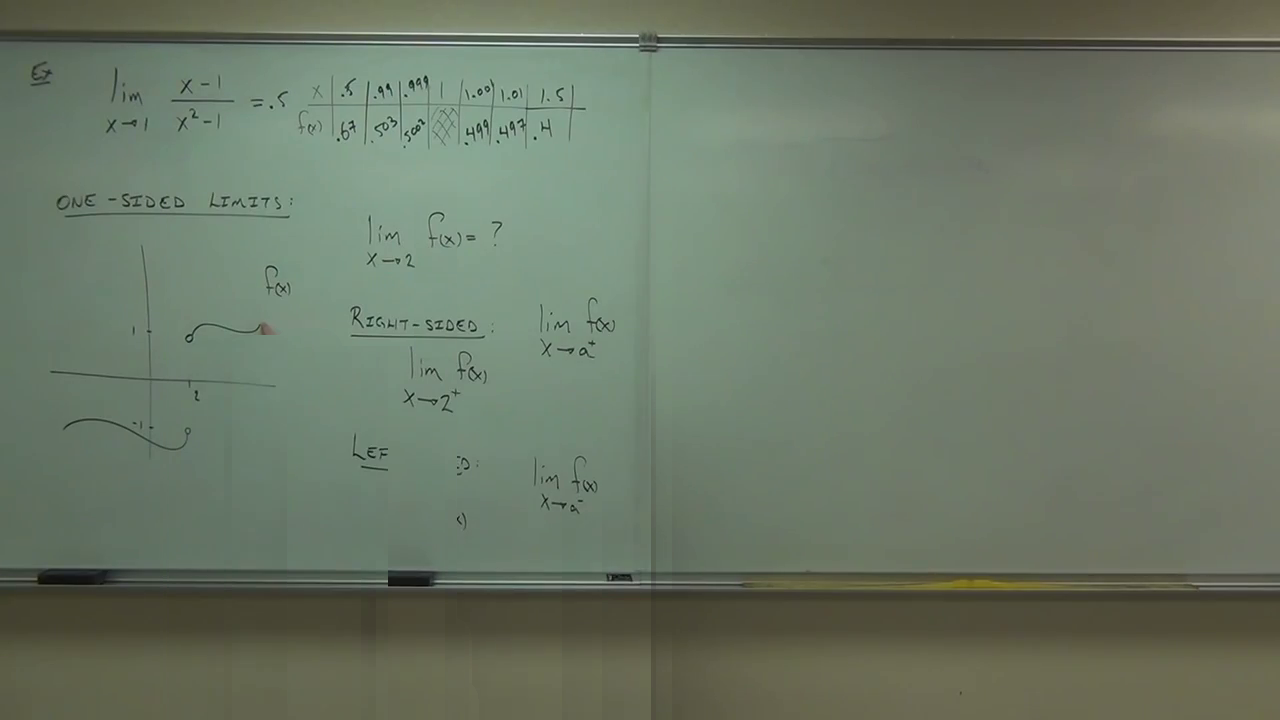 Ex
lim x→1 x-1 / x²-1 = .5
x | .5 | .99 | .999 | 1 | 1.001 | 1.01 | 1.5
f(x) | .67 | .503 | .5002 | | .499 | .497 | .4
ONE-SIDED LIMITS:
lim x→2 f(x) = ?
f(x)
1
2
-1
RIGHT-SIDED:
lim x→a⁺ f(x)
lim x→2⁺ f(x)
LEF
D:
lim x→a⁻ f(x)